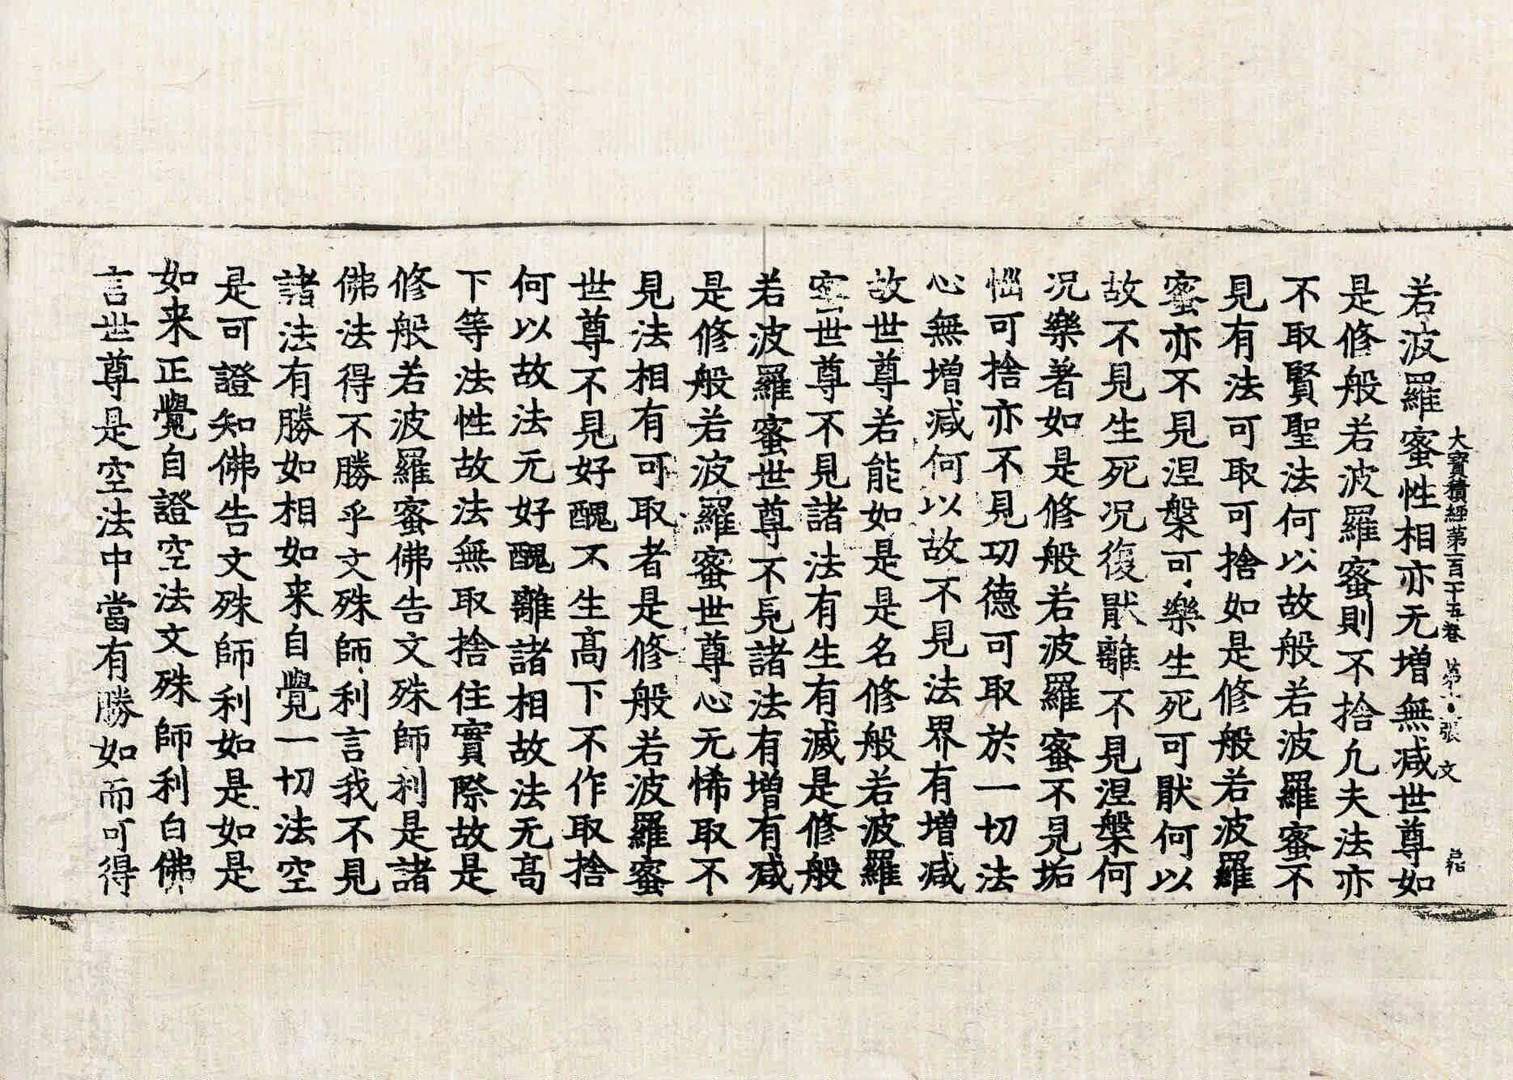 大寶積經第一百一十五卷 第 張 文
若波羅蜜性相亦无增無减世尊如
是修般若波羅蜜則不捨凡夫法亦
不取賢聖法何以故般若波羅蜜不
見有法可取可捨如是修般若波羅
蜜亦不見涅槃可樂生死可猒何以
故不見生死况復猒離不見涅槃何
况樂著如是修般若波羅蜜不見垢
惱可捨亦不見功德可取於一切法
心無增减何以故不見法界有增减
故世尊若能如是是名修般若波羅
蜜世尊不見諸法有生有滅是修般
若波羅蜜世尊不見諸法有增有减
是修般若波羅蜜世尊心无悕取不
見法相有可取者是修般若波羅蜜
世尊不見好醜不生髙下不作取捨
何以故法无好醜離諸相故法无髙
下等法性故法無取捨住實際故是
修般若波羅蜜佛告文殊師利是諸
佛法得不勝乎文殊師利言我不見
諸法有勝如相如来自覺一切法空
是可證知佛告文殊師利如是如是
如来正覺自證空法文殊師利白佛
言世尊是空法中當有勝如而可得